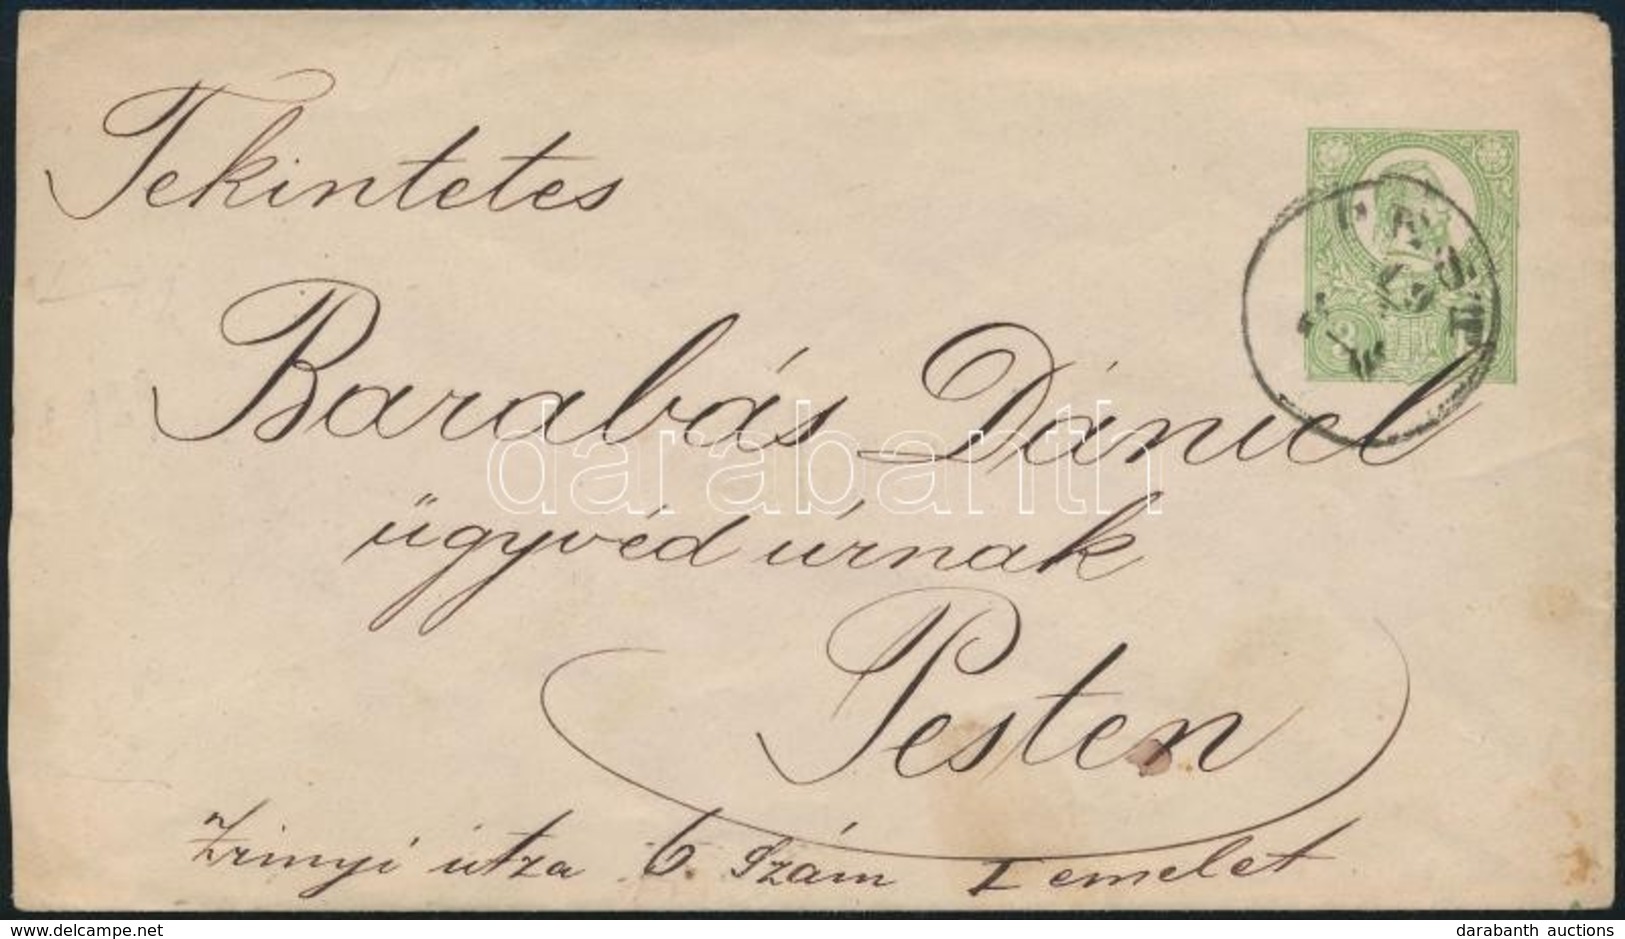 Tekintetes
PEST
Barabás Dániel
darabanth
ügyvéd úrnak
Pesten
Zrinyi útza 6. szám I emelet
www.delcampe.net
darabanth auctions